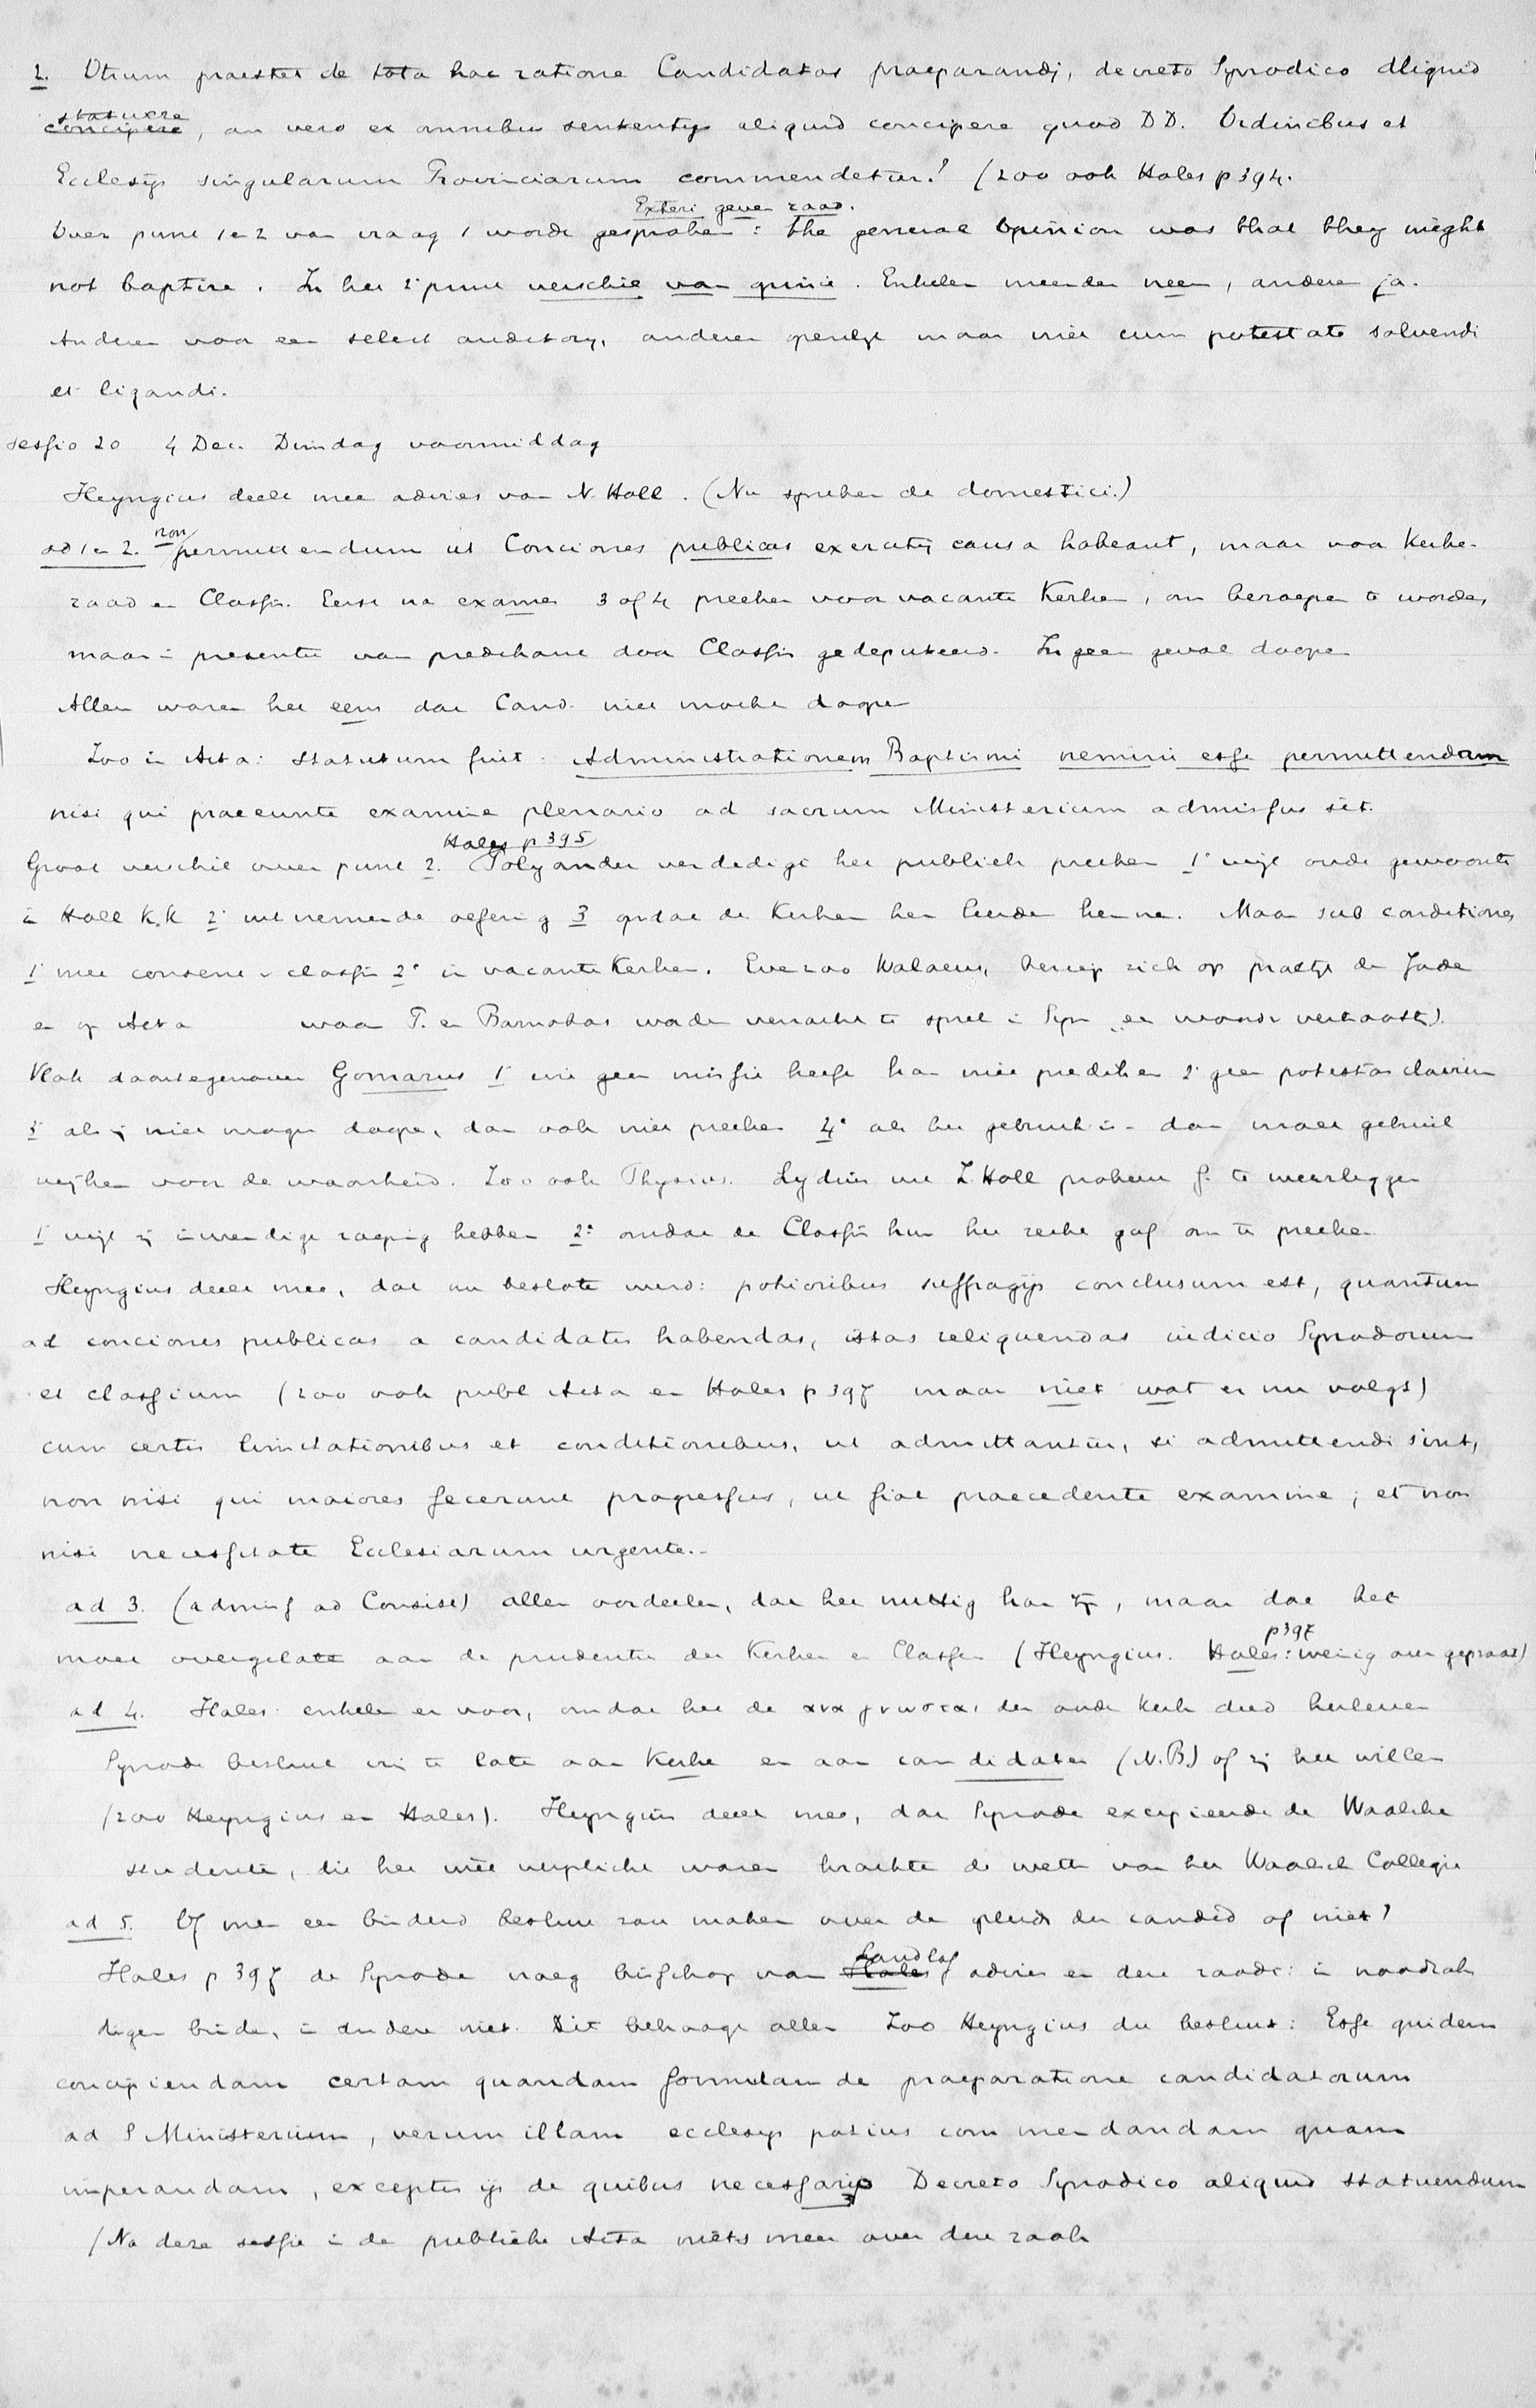 2. Utrum praestet de tota hac ratione Candidatos praeparandj, decreto Synodico aliquid
statuere
concipere, an vero ex omnibus sententijs aliquid concipere quod DD. Ordinibus et
Ecclesijs singularum Provinciarum commendetur? (zoo ook Hales p 394.
Exteri geven raad.
Over punt 1 en 2 van vraag 1 wordt gesproken: the general opinion was that they might
not baptize. In het 2e punt verschil van opinie. Enkelen meenden neen, anderen ja.
Anderen voor een select auditory, anderen openlijk maar niet cum potestate solvendi
et ligandi.
Sessio 20 4 Dec. Dinsdag voormiddag
Heyngius deelt mee advies van N. Holl. (Nu spreken de domestici.)
non
ad 1 en 2. permittendum ut Conciones publicas exercitij causa habeant, maar voor Kerke-
raad en Classis. Eerst na examen 3 of 4 preeken voor vacante Kerken, om beroepen te worden,
maar in presentie van predikant door Classis gedeputeerd. In geen geval doopen
Allen waren het eens dat Cand. niet mochten doopen
Zoo in Acta: statutum fuit. Administrationem Baptismi nemini esse permittendam
nisi qui praeeunte examine plenario ad sacrum Ministerium admissus sit.
Hales p 395
Groot verschil over punt 2. Polyander verdedigt het publiek preeken 1° wijl oude gewoonte
in Holl K.K 2° uitnemende oefening 3 opdat de Kerken hen leerden kennen. Maar sub conditiones
1° met consent v classis 2° in vacante Kerken. Evenzoo Walaeus, beriep zich op practijk der Joden
en op Acta waar P. en Barnabas werden verzocht te spreken in Syn een woord v vertroosting).
Vlak daartegenover Gomarus 1° wie geen missie heeft kan niet prediken 2° geen potestas clavium
3° als zij niet mogen doopen, dan ook niet preeken 4° als het gebruik is - dan moet gebruik
wijken voor de waarheid. Zoo ook Thysius. Lydius uit Z. Holl probeert G. te weerleggen
1° wijl zij inwendige roeping hebben 2° omdat de Classis hun het recht gaf om te preeken
Heyngius deelt mee, dat nu besloten werd: potioribus suffragijs conclusum est, quantum
ad conciones publicas a candidatis habendas, istas relinquendas iudicio Synodorum
et classium (zoo ook publ Acta en Hales p 397 maar niet wat er nu volgt)
cum certis limitationibus et conditionibus, ut admittantur, si admittendi sint,
non nisi qui maiores fecerunt progressus, ut fiat praecedente examine, et non
nisi necessitate Ecclesiarum urgente.-
ad 3. (admiss ad Consist) allen oordeelen, dat het nuttig kan zijn, maar dat het
p397
moet overgelaten aan de prudentie der Kerken en Classen (Heyngius. Hales: weinig over gepraat)
ad 4. Hales: enkelen er voor, omdat het de αναγνωσται der oude kerk deed herleven
Synode besluit vrij te laten aan Kerken en aan candidaten (N.B.) of zij het willen
(zoo Heyngius en Hales). Heyngius deelt mee, dat Synode excipieerde de Waalsche
studenten, die het wél verplicht waren krachtens de wetten van het Waalsch Collegie
ad 5. Of men een bindend besluit zou maken over de opleid. der candid of niet?
Landlaf
Hales p 397 de Synode vroeg bisschop van Hales advies en deze raadt: in noodzake
lijken binden, in andere niet. Dit behaagt allen Zoo Heyngius du besluit: Esse quidem
concipiendam certam quandam formulam de praeparatione candidatorum
ad S Ministerium, verum illam ecclesijs potius commendandam quam
imperandam, exceptis ijs de quibus necessario Decreto Synodico aliquid statuendum
(Na deze sessie in de publieke Acta niets meer over deze zaak